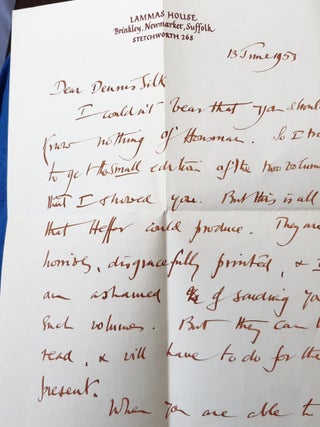 LAMMAS HOUSE
Brinkley, Newmarket, Suffolk
STETCHWORTH 268
13 June 1953
Dear Dennis Silk
I couldn't bear that you should
know nothing of Housman. So I
to get the small edition of the two volumes
that I showed you. But this is all
that Heffer could produce. They are
horrid, disgracefully printed, & I
am ashamed of sending you
such volumes. But they can be
read, & will have to do for the
present.
When you are able to